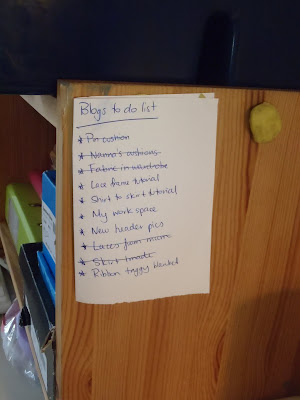 Blogs to do list
* Pin cushion
* Nanna's cushions
* Fabric in wardrobe
* Lace frame tutorial
* Shirt to skirt tutorial
* My work space
* New header pics
* Laces from mum
* Skirt I made
* Ribbon taggy blanket